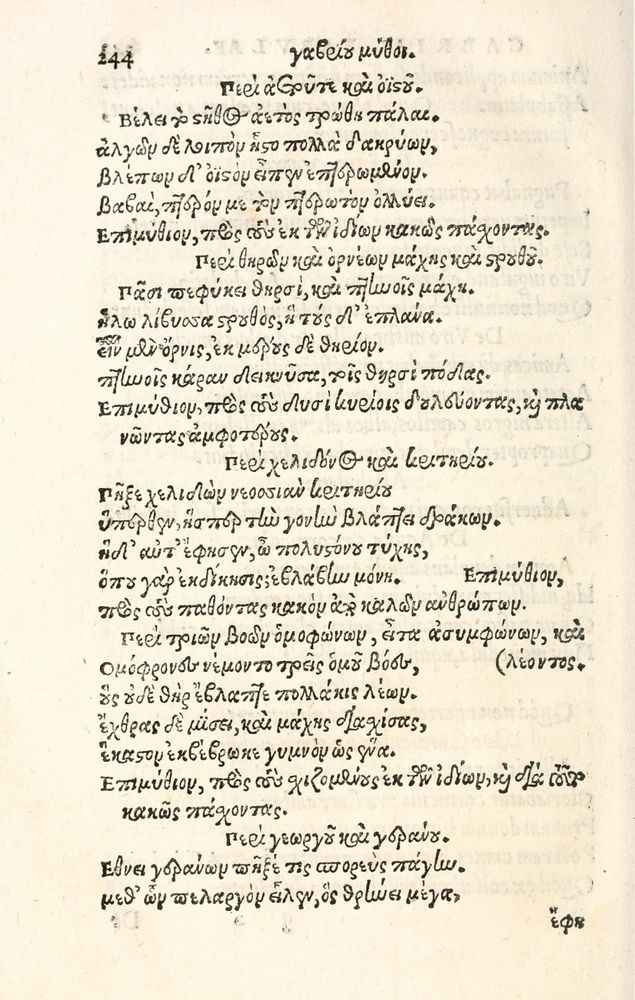 244 γαβρίου μῦθοι.
Περὶ ἀετοῦ τε καὶ ὀϊστοῦ.
Βέλει τὸ στῆθος ἀετὸς τρώθη πάλαι.
ἀλγῶν δὲ λοιπὸν ἧστο πολλὰ δακρύων,
βλέπων δ' ὀϊστὸν εἶπεν ἐπτερωμένον.
βαβαὶ, πτερόν με τὸν πτερωτὸν ὀλλύει.
Ἐπιμύθιον, πρὸς τοὺς ἐκ τῶν ἰδίων κακῶς πάσχοντας.
Περὶ θηρῶν καὶ ὀρνέων μάχης καὶ στρουθοῦ.
Πᾶσι πεφύκει θηρσὶ, καὶ πτηνοῖς μάχη.
ἥλω λίβυσσα στρουθὸς, ἣ τούς δ' ἐπλάνα.
εἶναι μὲν ὄρνις, ἐκ μέρους δὲ θηρίον.
πτηνοῖς κάραν δεικνῦσα, τοῖς θηρσὶ πόδας.
Ἐπιμύθιον, πρὸς τοὺς δυσὶ κυρίοις δουλεύοντας, καὶ πλα
νῶντας ἀμφοτέρους.
Περὶ χελιδόνος καὶ κριτηρίου.
Πῆξε χελιδὼν νεοσσιὰν κριτηρίου
ὕπερθεν, ἧσπερ τὴν γονὴν βλάπτει δράκων.
ἡ δ' αὖτ' ἔφησεν, ὦ πολυστόνου τύχης,
ὅπου γὰρ ἐκδίκησις; ἐβλάβην μόνη. Ἐπιμύθιον,
πρὸς τοὺς παθόντας κακὸν παρὰ καλῶν ἀνθρώπων.
Περὶ τριῶν βοῶν ὁμοφώνων, εἶτα ἀσυμφώνων, καὶ
Ὁμόφρονες νέμοντο τρεῖς ὁμοῦ βόες, (λέοντος.
οὓς οὐδὲ θὴρ ἔβλαπτε πολλάκις λέων.
ἔχθρας δὲ μίσει, καὶ μάχης διασχίσας,
ἕκαστον ἐκβέβρωκε γυμνὸν ὡς ἕνα.
Ἐπιμύθιον, πρὸς τοὺς σχιζομένους ἐκ τῶν ἰδίων, καὶ διὰ τοῦτο
κακῶς πάσχοντας.
Περὶ γεωργοῦ καὶ γεράνου.
Ἔθνει γεράνων πῆξέ τις σπορεὺς πάγην.
μεθ' ὧν πελαργὸν εἷλεν, ὃς θρήνει μέγα,
ἔφη